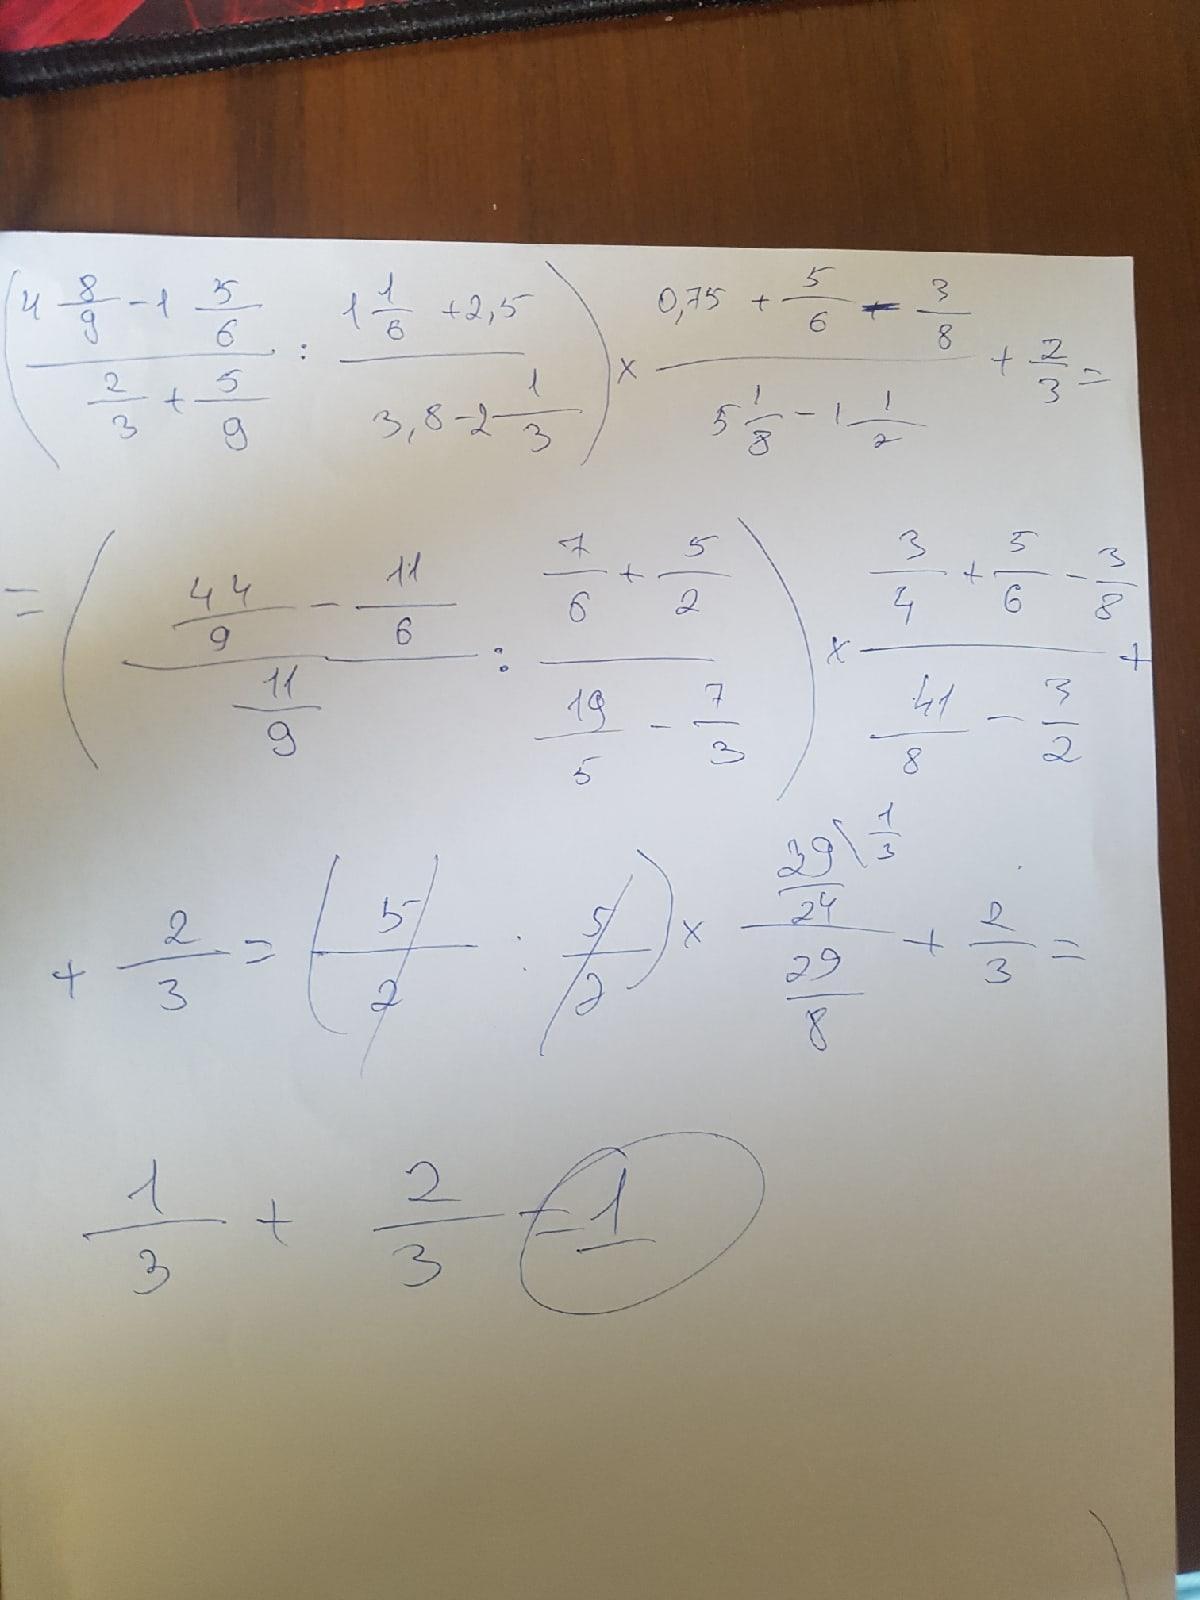 (4 8/9 - 1 5/6 / 2/3 + 5/9 : 1 1/6 + 2,5 / 3,8 - 2 1/3) × 0,75 + 5/6 - 3/8 / 5 1/8 - 1 1/2 + 2/3 =
= (44/9 - 11/6 / 11/9 : 7/6 + 5/2 / 19/5 - 7/3) × 3/4 + 5/6 - 3/8 / 41/8 - 3/2 +
+ 2/3 = (5/2 : 5/2) × 29/24 \ 1/3 / 29/8 + 2/3 =
1/3 + 2/3 = 1